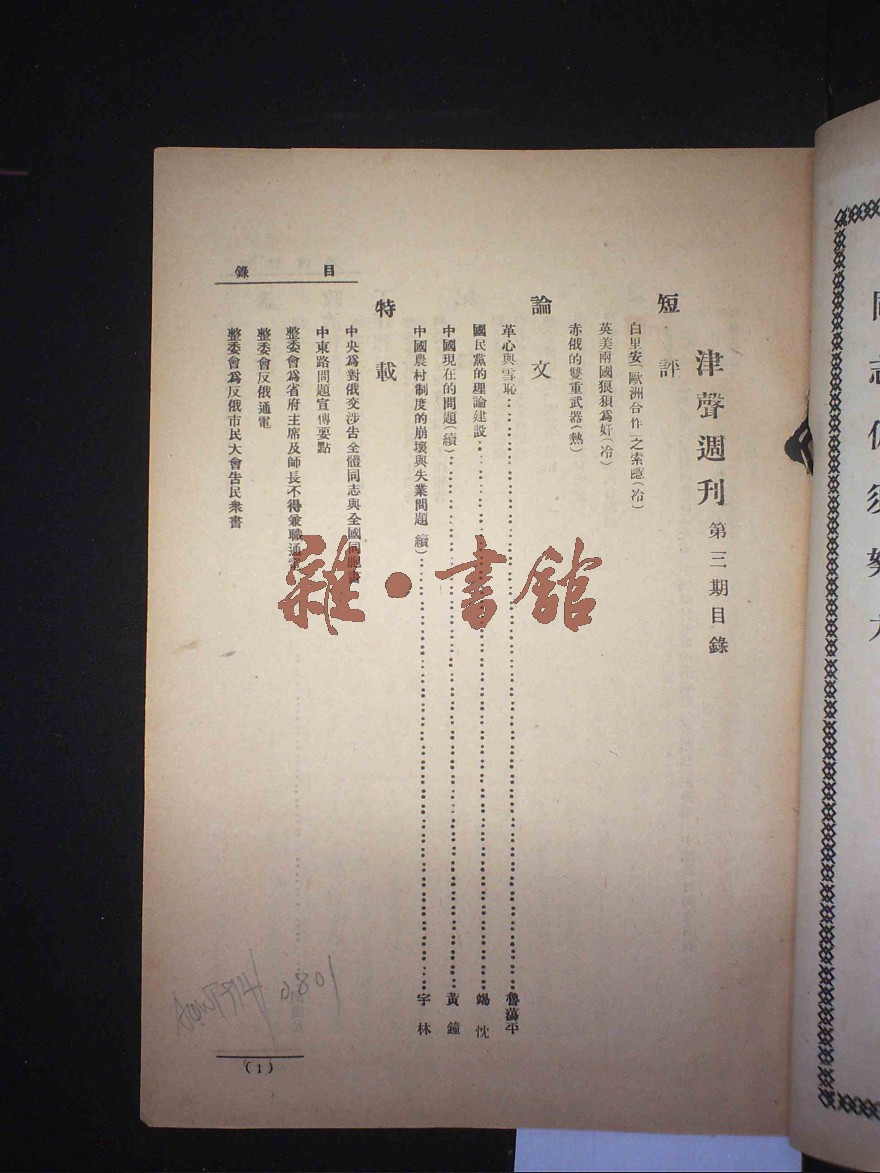 津聲週刊 第三期目錄
短評
白里安「歐洲合作」之索隱(冷)
英美兩國狠狽爲奸(冷)
赤俄的雙重武器(熱)
論文
革心與雪恥……魯蕩平
國民黨的理論建設……竭忱
中國現在的問題(續)……黃鐘
中國農村制度的崩壞與失業問題 續)……宇林
特載
中央爲對俄交涉告全體同志與全國同胞書
中東路問題宣傳要點
整委會爲省府主席及師長不得兼職通電
整委會反俄通電
整委會爲反俄市民大會告民衆書
目錄
(1)
雜·書館
0801
同志仍須努力